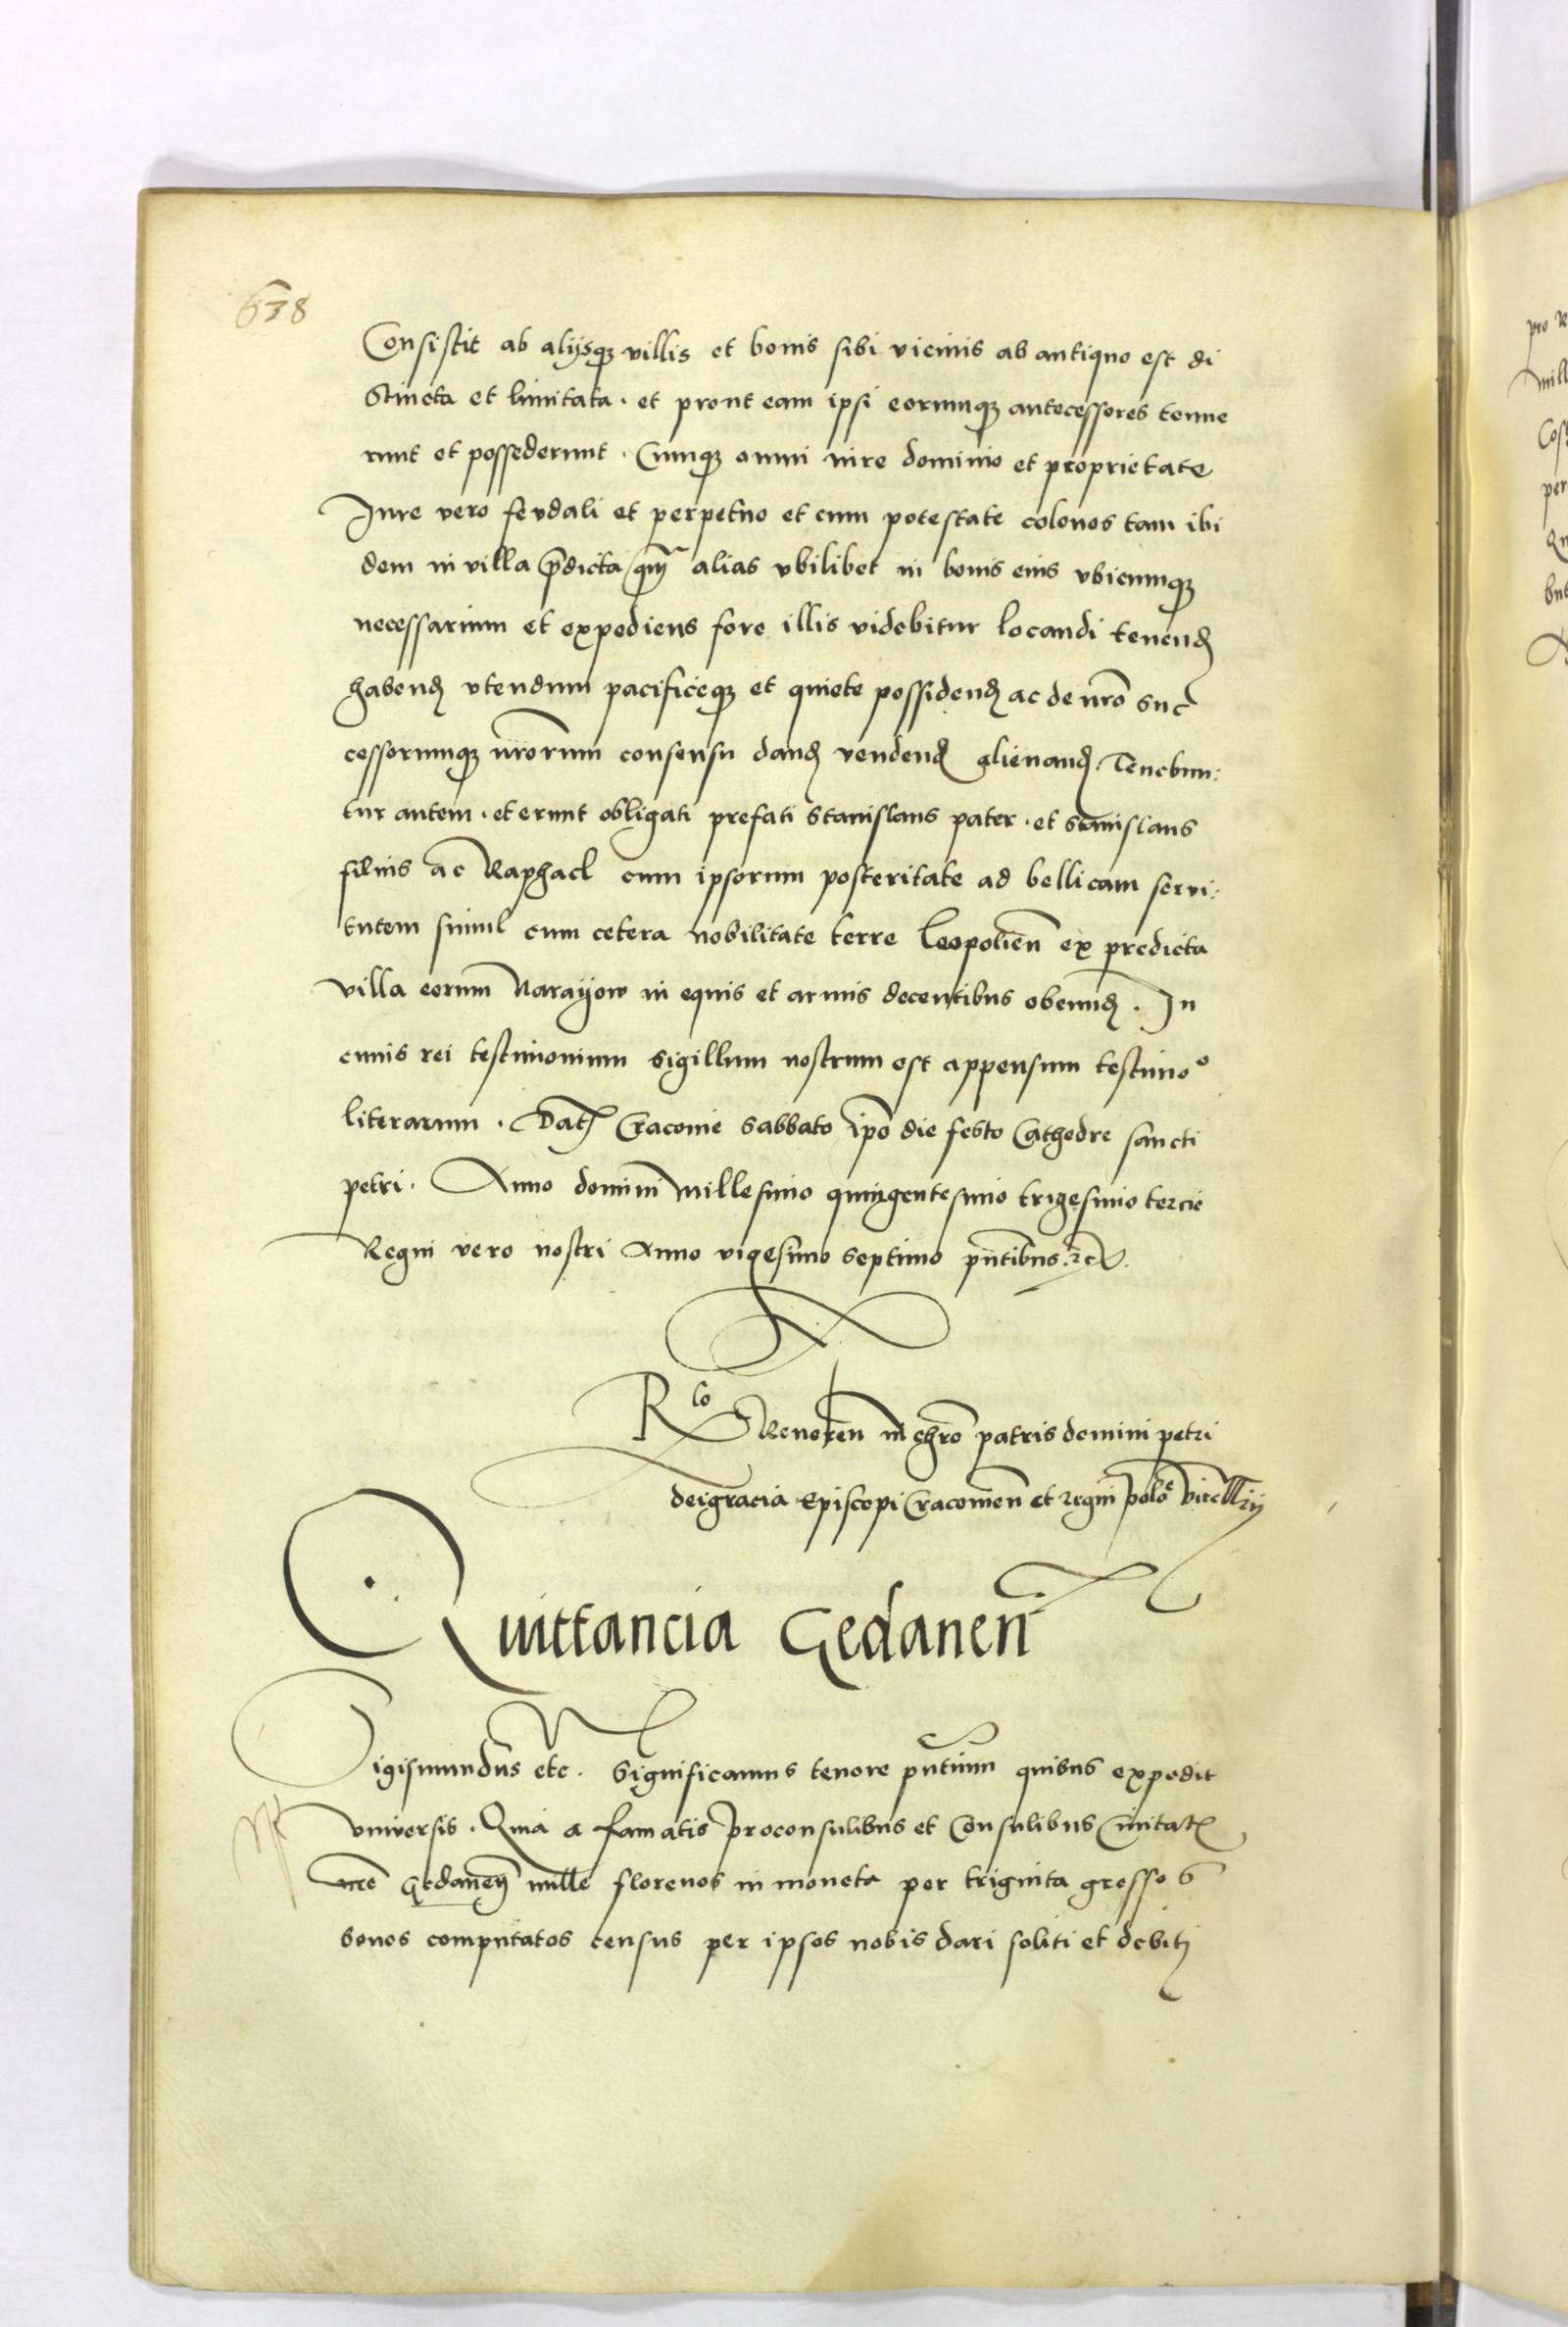 638
Consistit ab alijsq3 villis et bonis sibi vicinis ab antiquo est di
stincta et limitata . et prout eam ipsi eorumq3 antecessores tenue
runt et possederunt . Cumq3 omni iure dominio et proprietate
Jure vero feudali et perpetuo et cum potestate colonos tam ibi
dem in villa p̄dicta q̄m alias vbilibet in bonis eius vbicumq3
necessarium et expediens fore illis videbitur locandi tenend
habend vtendum pacificeq3 et quiete possidend ac de nr̄o suc
cessorumq3 nr̄orum consensu dand vendend alienand . Tenebun:
tur autem . et erunt obligati prefati Stanislaus pater . et Stanislaus
filius ac Raphael cum ipsorum posteritate ad bellicam servi:
tutem simul cum cetera nobilitate terre Leopolien̄ ex predicta
villa eorum Narayow in equis et armis decentibus obeund . In
cuius rei testimonium sigillum nostrum est appensum testimoo
literarum . Dat Cracovie Sabbato ip̄o die festo Cathedre sancti
petri . Anno domini Millesimo quingentesimo trigesimo tercio
Regni vero nostri Anno vigesimo septimo pn̄tibus . etc.
Rlo Reveren in chr̄o patris domini petri
dei gracia Episcopi Cracovien̄ et regni polo vicecllrij
Quittancia Gedanen̄
Sigismundus etc . Significamus tenore pn̄tium quibus expedit
vniversis . Quia a famatis proconsulibus et Consulibus Civitat
nr̄e Gedanen̄ mille florenos in moneta per triginta grosso s
bonos computatos census per ipsos nobis dari soliti et debiti